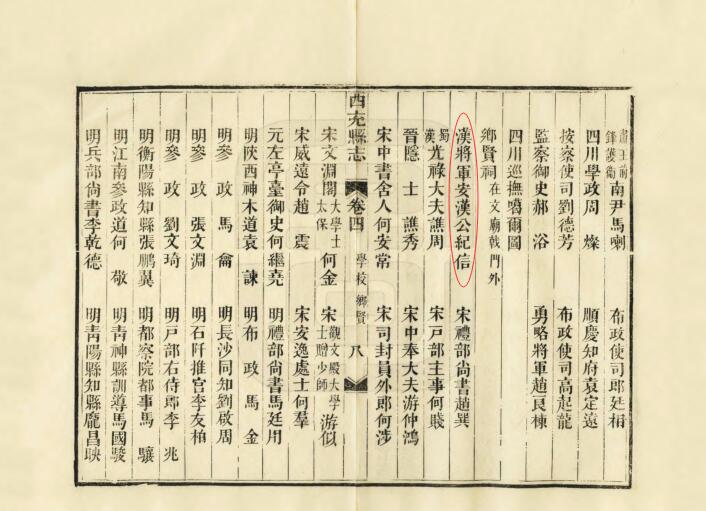 王前鋒護衛南尹馬喇　布政使司郎廷相
四川學政周燦　順慶知府袁定遠
按察使司劉德芳　布政使司高起龍
監察御史郝浴　勇略將軍趙良棟
四川巡撫噶爾圖
鄉賢祠在文廟戟門外
漢將軍安漢公紀信　宋禮部尚書趙巽
蜀漢光祿大夫譙周　宋戶部主事何賤
晉隱士譙秀　宋中奉大夫游仲鴻
宋中書舍人何安常　宋司封員外郎何涉
西充縣志　卷四　學校　鄉賢　八
宋文淵閣大學士太保何金　宋觀文殿大學士贈少師游似
宋威遠令趙震　宋安逸處士何羣
元左亭臺御史何繼堯　明禮部尚書馬廷用
明陝西神木道袁諫　明布政馬金
明參政馬侖　明長沙同知劉啟周
明參政張文淵　明石阡推官李友柏
明參政劉文琦　明戶部右侍郎李兆
明衡陽縣知縣張鵬翼　明都察院都事馬驤
明江南參政道何敬　明青神縣訓導馬國駿
明兵部尚書李乾德　明青陽縣知縣龐昌映